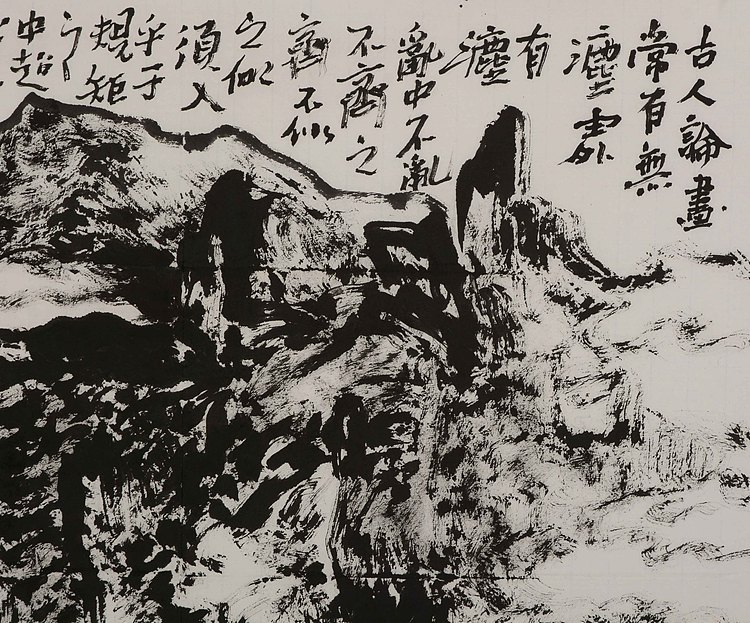 古人論畫
常有無
灋處
有
灋
亂中不亂
不齊之
齊不似
之似
須入
乎于
規矩
之
中超